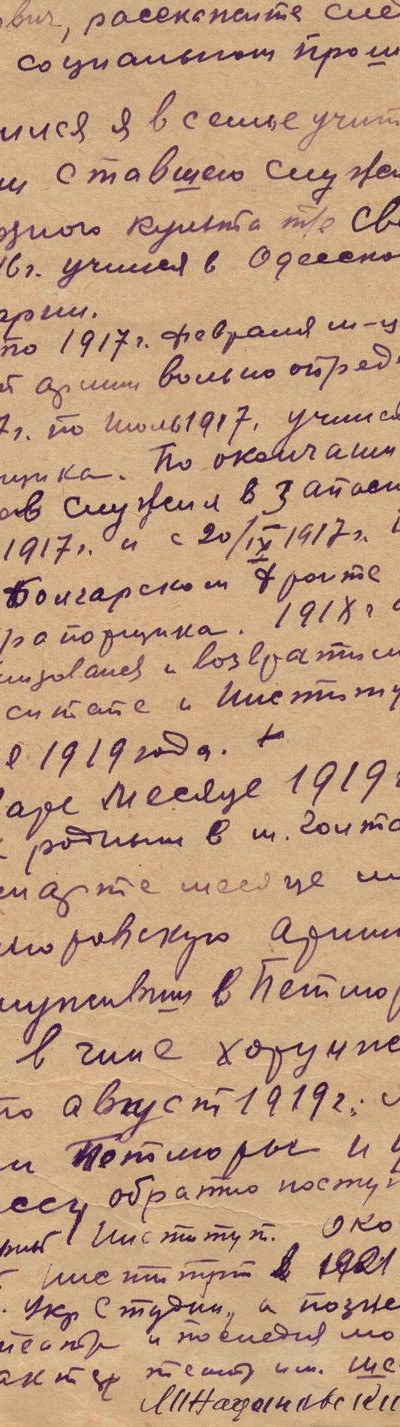 ович, расскажите сле
социальном прош
ился я в семье учит
ставшего служи
озного культа т/е св
16г. учился в Одесско
арии.
по 1917г. февраля м-ц
й армии вольно опред
7г. по июль 1917, учился
щика. По окончани
ов служил в Запасн
1917г. и с 20/IX 1917г.
Болгарском фронте
рапорщика. 1918г
изовался и возвратился
ситете и Институ
е 1919 года. +
аре месяце 1919г
к родным в м. Голта
марте месяце м
люровскую арми
служивши в Петлюр
в чине хорунже
по август 1919г.
и Петлюры и
ессу обратно поступ
ный Институт. Око
й институт в 1921
. Укр Студии, а позже
театр и последня мо
актер театр им. Ше